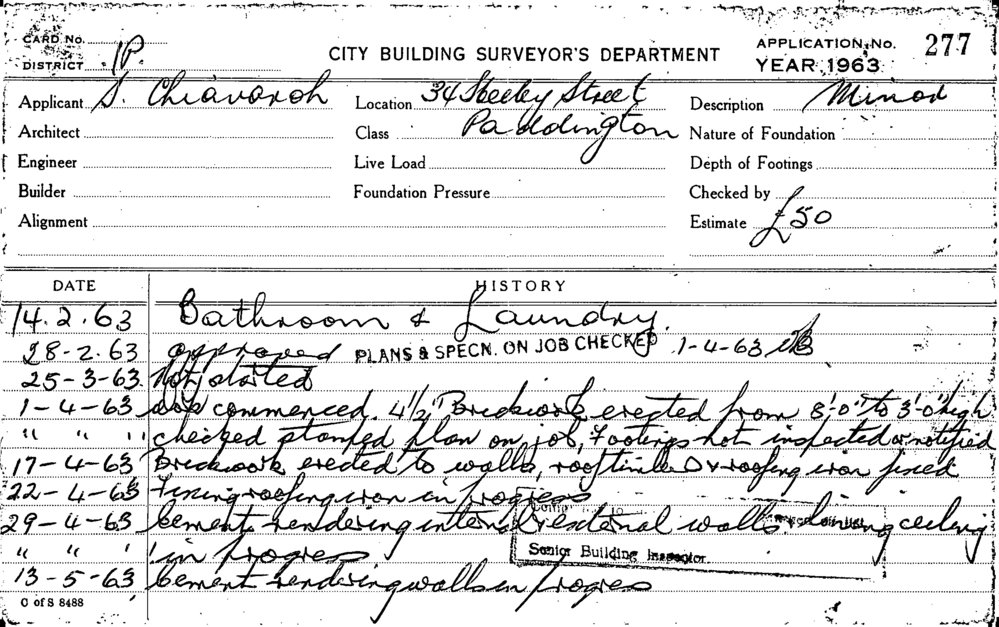 CARD No.
DISTRICT 1P.
CITY BUILDING SURVEYOR'S DEPARTMENT
APPLICATION No. 277
YEAR 1963
Applicant S. Chiavaroh Location 34 Heeley Street Description Minor
Architect Class Paddington Nature of Foundation
Engineer Live Load Depth of Footings
Builder Foundation Pressure Checked by
Alignment Estimate £50
DATE HISTORY
14.2.63 Bathroom & Laundry.
28-2.63 approved PLANS & SPECN. ON JOB CHECKED 1-4-63
25-3-63. Not started
1-4-63 commenced. 4½" Brickwork erected from 8'-0" to 3'-0" high
" " " checked stamped plan on job, Footings not inspected or notified
17-4-63 Brickwork erected to walls, roof timber & roofing iron fixed
22-4-63 Fixing roofing iron in progress
29-4-63 Cement rendering internal & external walls lining ceiling
" " ' in progress
Senior Building Inspector.
13-5-63 Cement rendering walls in progres
C of S 8488